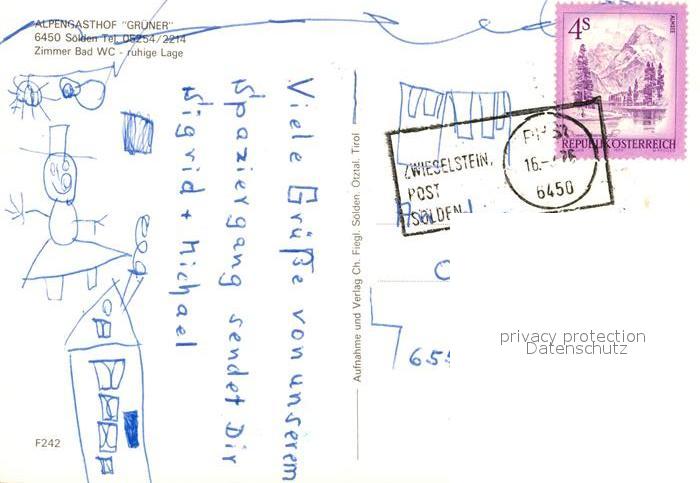 ALPENGASTHOF "GRÜNER"
6450 Sölden Tel. 05254/2214
Zimmer Bad WC - ruhige Lage
Viele Grüße von unserem
Spaziergang sendet Dir
Sigrid + Michael
F242
Aufnahme und Verlag Ch. Fiegl. Sölden. Ötztal. Tirol
4S
ALMSEE
REPUBLIK ÖSTERREICH
ZWIESELSTEIN,
POST
SÖLDEN
6450
privacy protection
Datenschutz